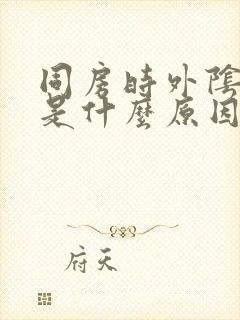 同房時外陰
是什麼原因
府天